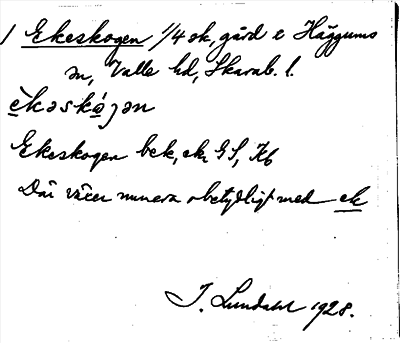 1 Ekeskogen 1/4 sk, gård i Häggums
sn, Valle hd, Skarab. l.
èkəskó̱gən
Ekeskogen bek, ek, GS, Kb
Där växer numera obetydligt med ek
J. Lundahl 1928.